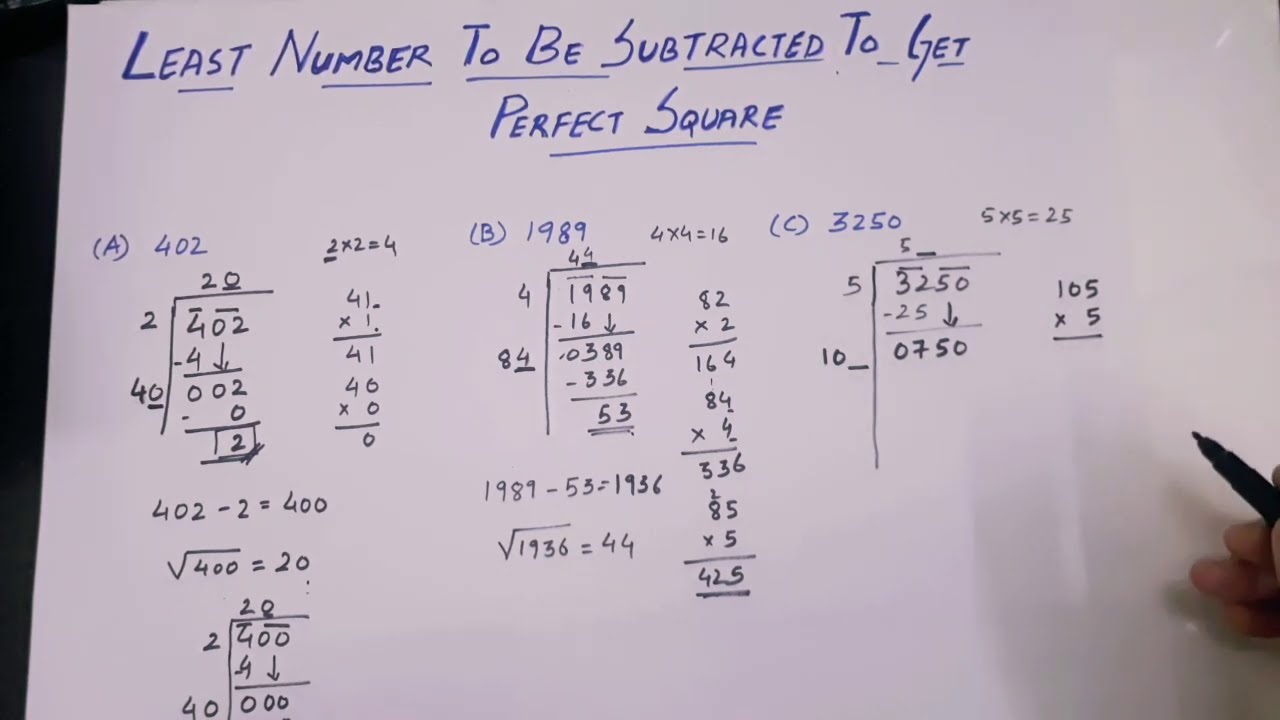 LEAST NUMBER TO BE SUBTRACTED TO GET
PERFECT SQUARE
(A) 402
2×2=4
20
2
402
-4↓
40
002
- 0
2
41
× 1
41
40
× 0
0
402 - 2 = 400
√400 = 20
20
2
400
-4↓
40
000
(B) 1989
4×4=16
44
4
1989
-16↓
84
0389
-336
53
82
× 2
164
84
× 4
336
2
85
× 5
425
1989 - 53 = 1936
√1936 = 44
(C) 3250
5×5=25
5_
5
3250
-25↓
10_
0750
105
× 5